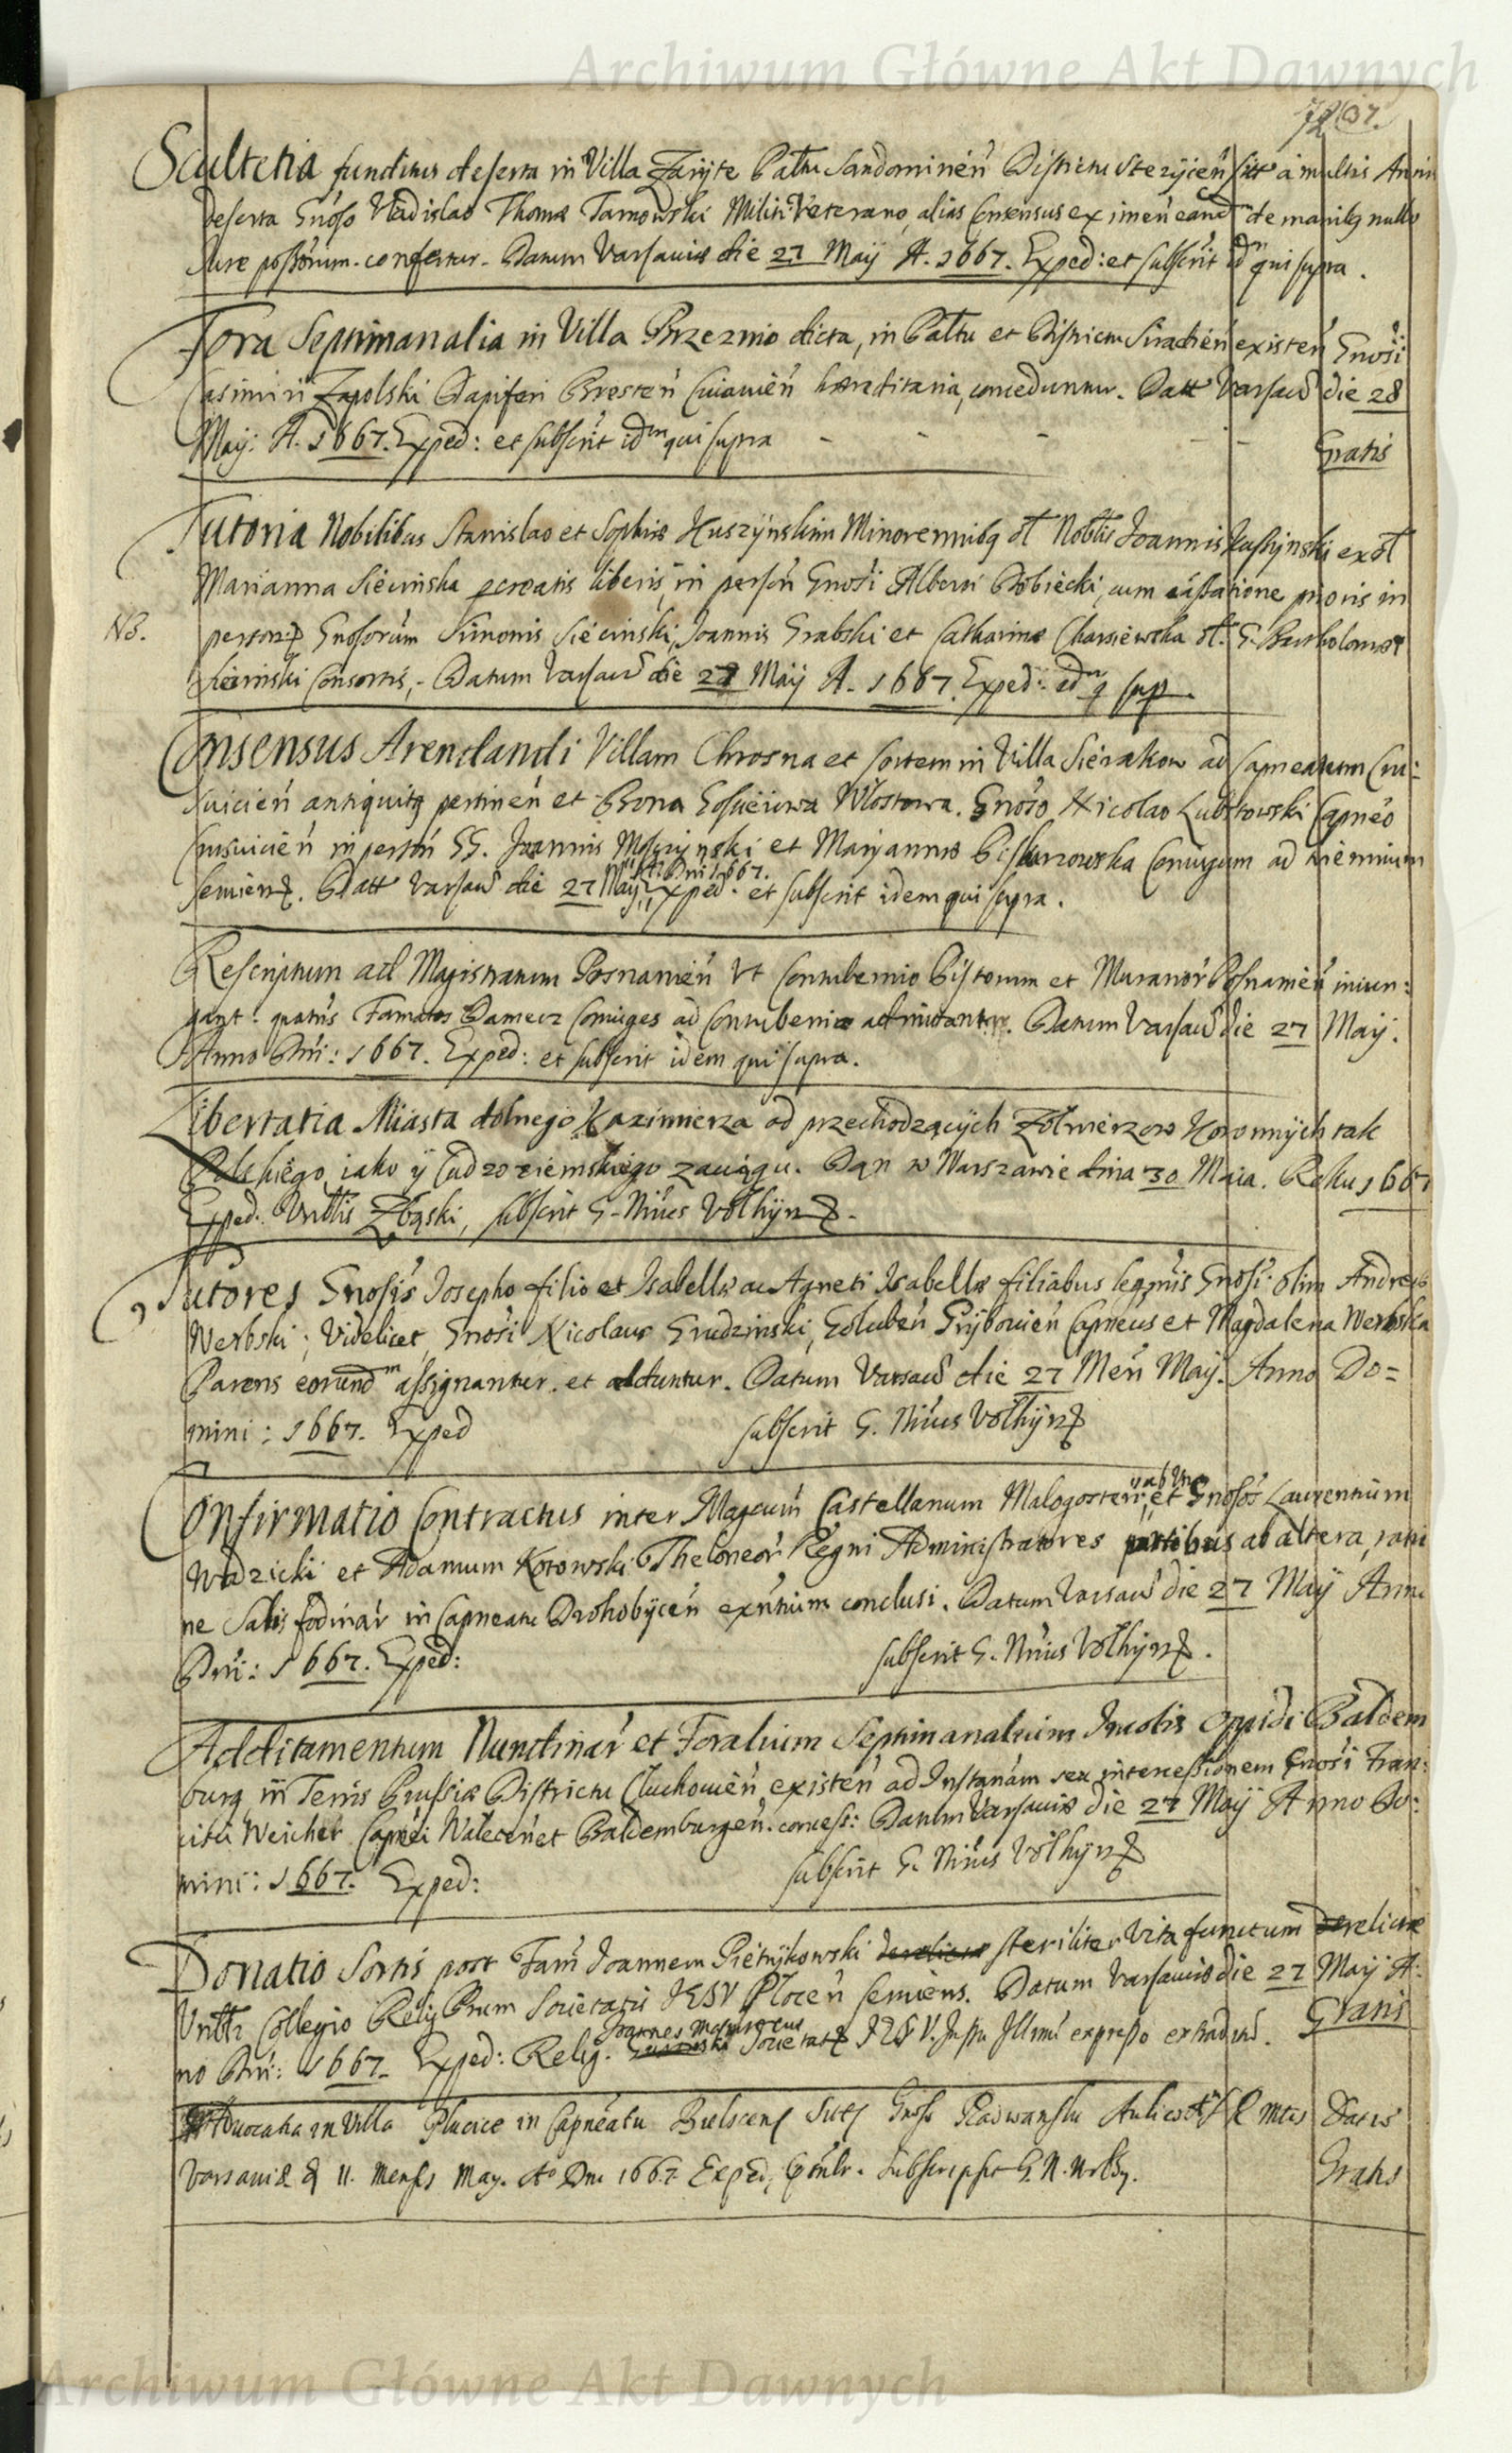 Archiwum Główne Akt Dawnych
Scultetia funditus deserta in Villa Zaryte Pattu Sandomirien Districtu Stezycien sitt a multis Annis
deserta Gnoso Vladislao Thomæ Tarnowski Militi Veterano, alias Consensus eximen eand de manibq nullo
Iure possorum. confertur. Datum Varsaviæ die 27 Maÿ A. 1667. Exped: et subscrit idm qui supra.
Fora Septimanalia in Villa Brzeznio dicta, in Pattu et Districtu Siradien existen Gnosi
Casimiri Zapolski Dapiferi Bresten Cuiavien hæreditaria, conceduntur. Datt Varsav die 28
Maÿ: A. 1667. Exped: et subscrit idm qui supra - - - - Gratis
Tutoria Nobilibus Stanislao et Sophiæ Kuszÿnskim Minorennibq ol Noblis Joannis Kuszÿnski ex ol
Marianna Siecinska pcreatis liberis, in person Gnosi Alberti Dobiecki, cum cassatione prioris in
NB. person Gnosorum Simonis Siecinski, Joannis Grabski et Catharinæ ol. G. Bartholomæi
Siecinski Consortis,- Datum Varsav die 27 Maÿ A. 1667. Exped: idm q sup.
Consensus Arendandi Villam Chrosna et Sortem in Villa Sierakow ad Capneatum Cru:
suicien antiquitq pertinen et Bona Gosciewa Wlostowa. Gnoso Nicolao Lubstowski Capneo
Crusuicien in person GG. Joannis Moszÿnski et Maryannæ Conjugum ad triennium
serviens. Datt Varsav die 27 Maÿ A. Dni 1667. Exped: et subscrit idem qui supra.
Rescriptum ad Magistratum Posnanien Vt Contubernio Pistorum et Murator Posnanien iniun:
gant. quatus Famatos Damecz Coniuges ad Contubernia admittantur. Datum Varsav die 27 Maÿ.
Anno Dni: 1667. Exped: et subscrit idem qui supra.
Libertatia Miasta dolnego Kazimierza od przechodzących Zolnierzow Koronnÿch tak
Polskiego iako ÿ Cudzoziemskiego zaciągu. Dan w Warszawie dnia 30 Maia. Roku 1667
Exped. Vrblis Zbąski, subscrit G. Nirius Volhÿn
Tutores Gnosis Josepho filio et Isabellæ ac Agneti Isabellæ filiabus legmis Gnosi. olim Andreæ
Werbski; Videlicet, Gnosi Nicolaus Grudzinski, Goluben Grÿbovien Capneus et Magdalena Werbska
Parens eorundm assignantur. et adduntur. Datum Varsav die 27 Men Maÿ. Anno Do=
mini: 1667. Exped subscrit G. Nirius Volhÿn
Confirmatio Contractus inter Magcum Castellanum Malogosten ab Una et Gnosos Laurentium
Wodzicki et Adamum Kotowski Theloneor Regni Administratores partibus ab altera, rati
ne Salis fodinar in Capneatu Drohobÿcen exntium conclusi. Datum Varsav die 27 Maÿ Anno
Dni: 1667. Exped: subscrit G. Nirius Volhÿn.
Additamentum Nundinar et Foralium Septimanalium Incolis Oppidi Baldem
burg in Terris Prussiæ Districtu Cluchovien existen ad Instanam seu intercessionem Gnosi Fran:
cisci Weicher Capnei Walecen et Baldemburgen. concess: Datum Varsaviæ die 27 Maÿ Anno Do:
mini: 1667. Exped: subscrit G. Nirius Volhÿn
Donatio Sortis post Fam Joannem Pietrÿkowski steriliter Vita functum derelictæ
Collegio Relig Prum Societatis JESV Plocen serviens. Datum Varsaviæ die 27 Maÿ A:
no Dni: 1667. Exped: Relig. Joannes Societat JESV. Jussu Illrmi expresso extradend. Gratis
Advocatia in Villa Plucice in Capneatu Bielscens Sita Gnoso Radwanski Aulico S R Mtis Datis
Varsaviæ d 11. Mensis May. Ao Dni 1667. Exped, Subscripsit G. N. Wolhÿ. Gratis
Archiwum Główne Akt Dawnych